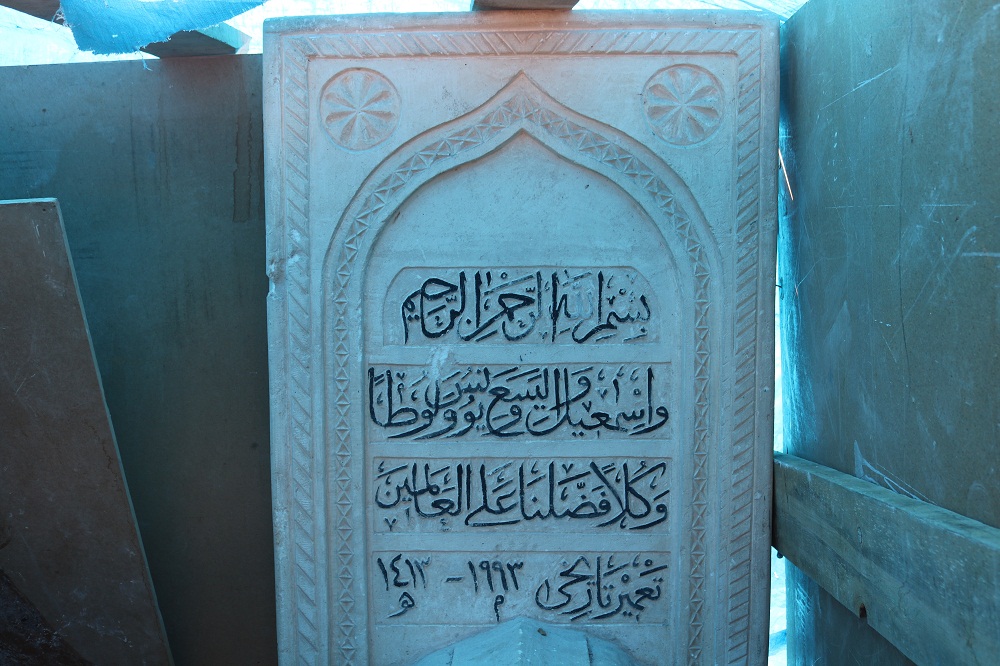 بِسْمِ اللهِ الرَّحْمٰنِ الرَّحِيمِ
وَاِسْمٰعِيلَ وَالْيَسَعَ وَيُونُسَ وَلُوطًا
وَكُلًّا فَضَّلْنَا عَلَى الْعَالَمِينَ
تَعْمِيْر تَارِيخِى ١٩٩٣ م - ١٤١٣ ه